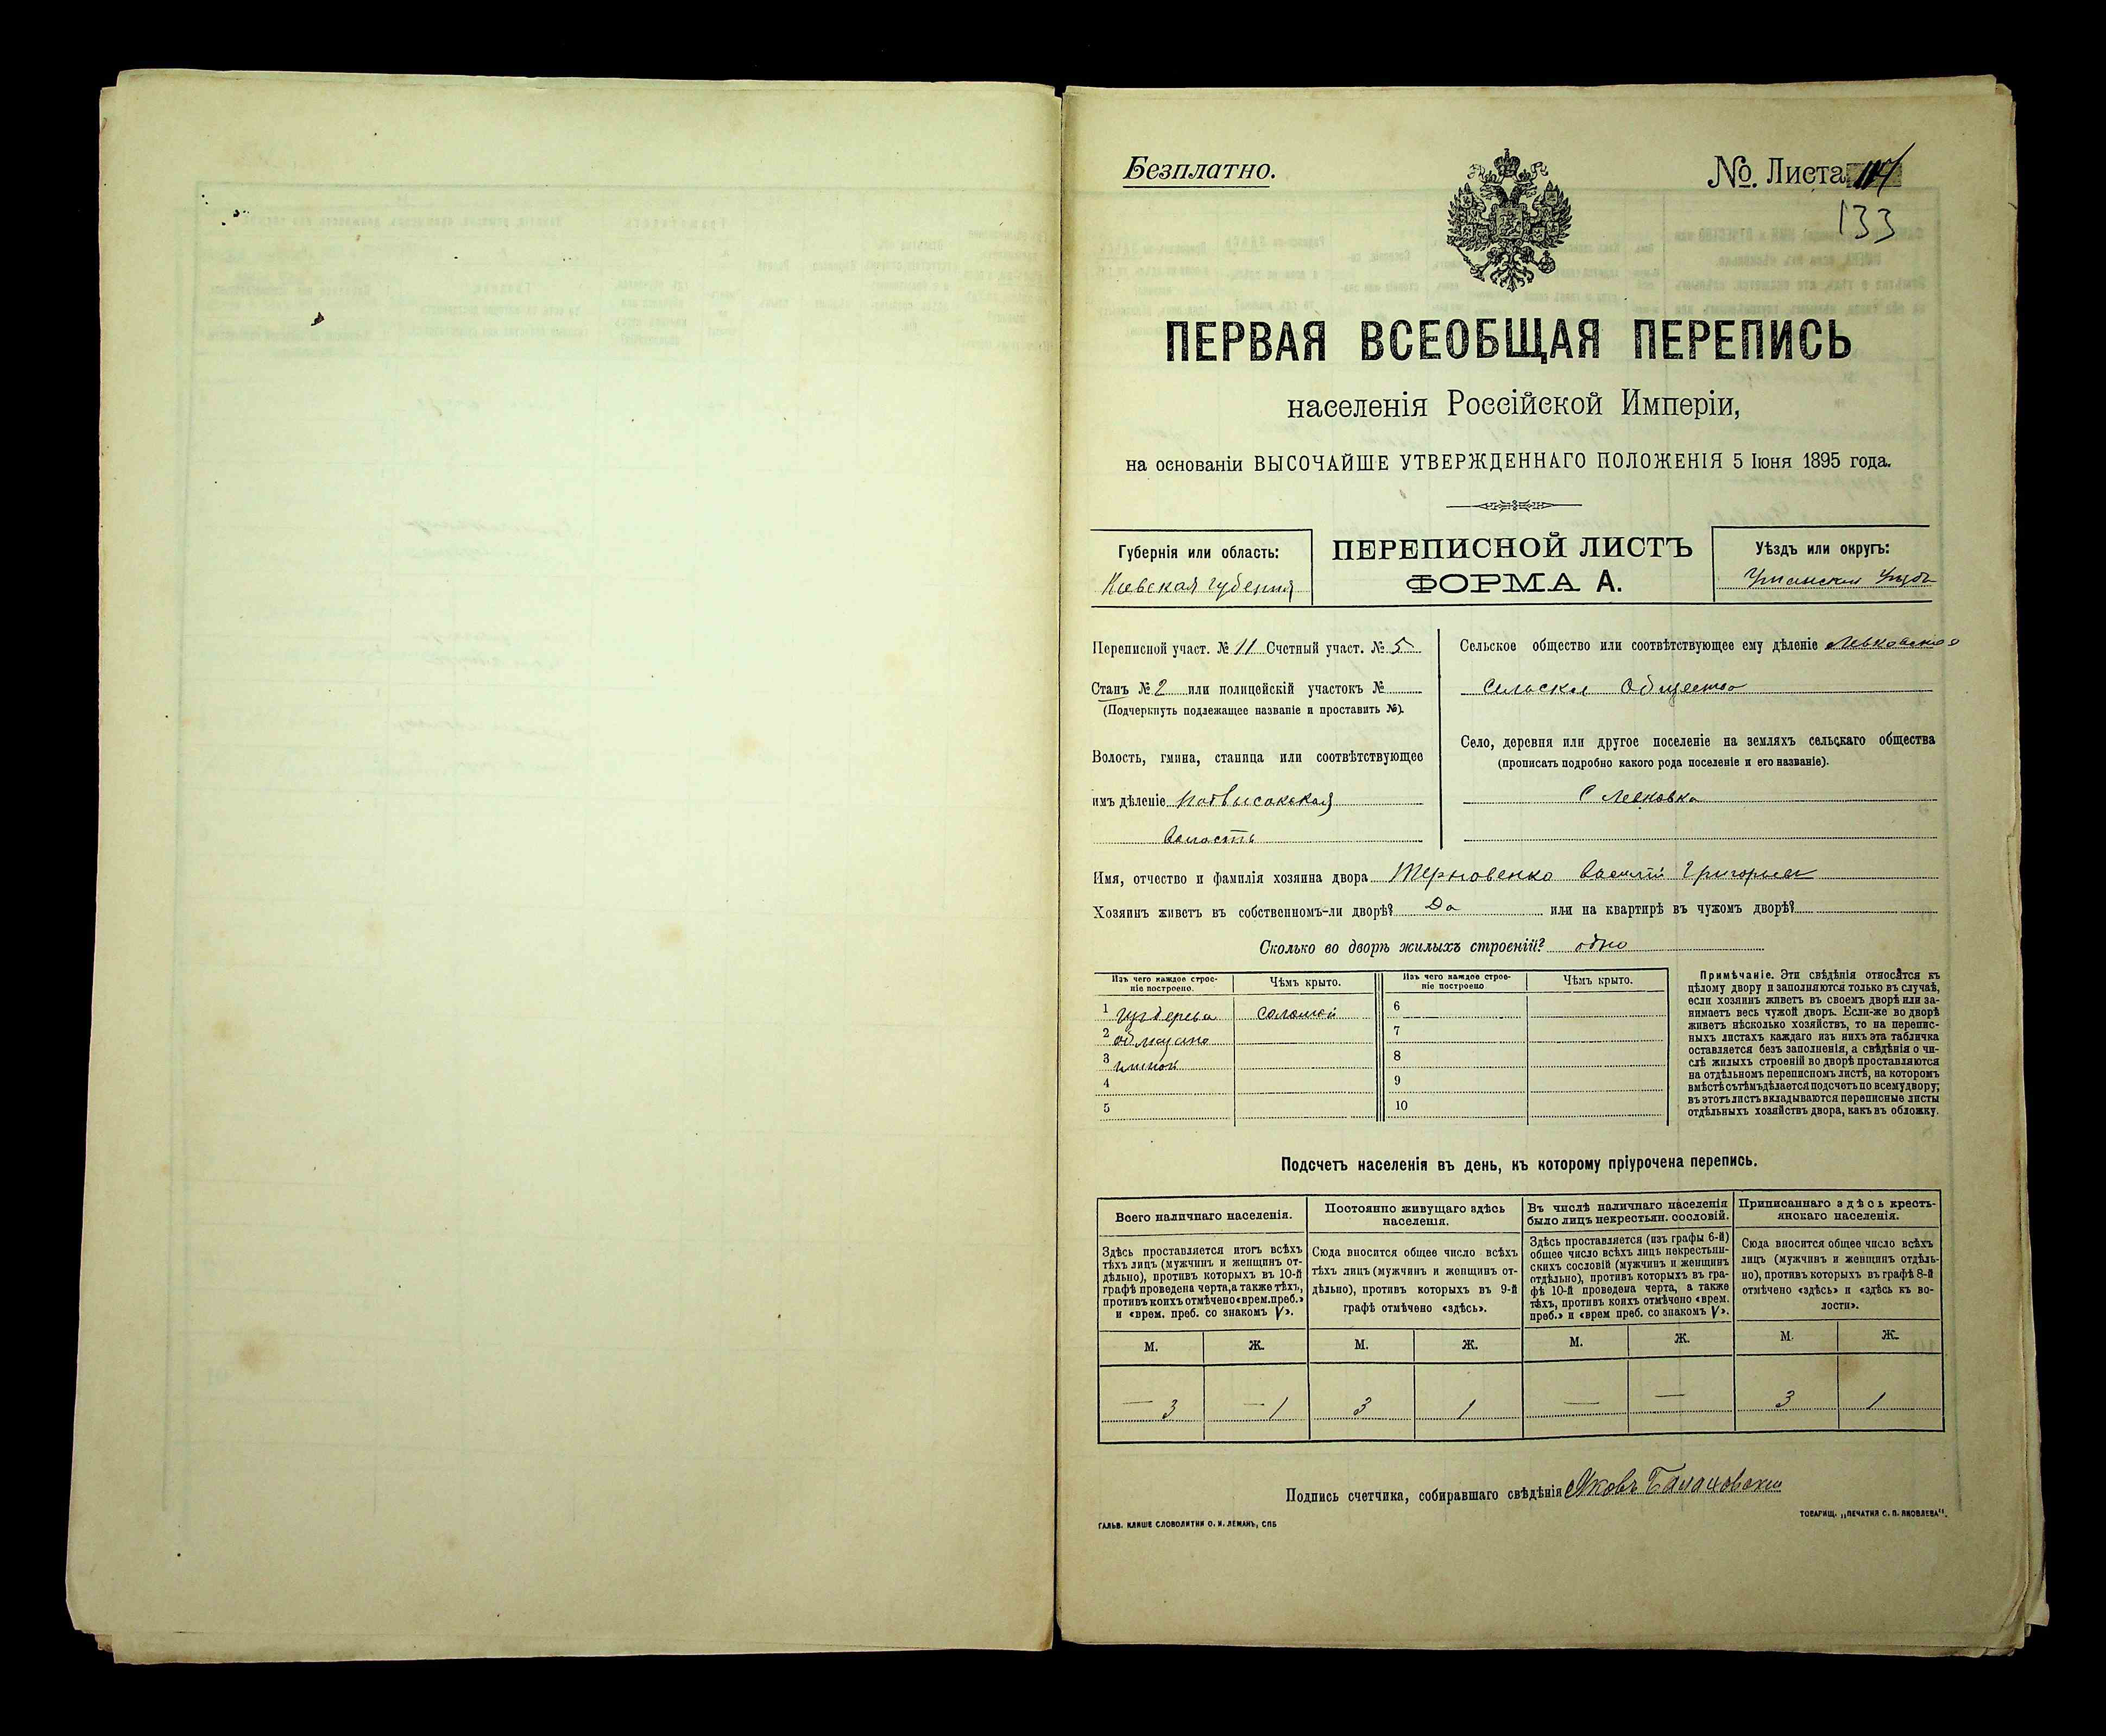 Безплатно.
№. Листа 114
133
ПЕРВАЯ ВСЕОБЩАЯ ПЕРЕПИСЬ
населенія Россійской Имперіи,
на основаніи ВЫСОЧАЙШЕ УТВЕРЖДЕННАГО ПОЛОЖЕНІЯ 5 Іюня 1895 года.
Губернія или область:
Кіевская губернія
ПЕРЕПИСНОЙ ЛИСТЪ
ФОРМА А.
Уѣздъ или округъ:
Уманскій Уѣздъ
Переписной участ. № 11 Счетный участ. № 5
Станъ № 2 или полицейскій участокъ №
(Подчеркнуть подлежащее названіе и проставить №).
Волость, гмина, станица или соотвѣтствующее
имъ дѣленіе Подвысокская
Волость
Сельское общество или соотвѣтствующее ему дѣленіе Левковское
Сельское Общество
Село, деревня или другое поселеніе на земляхъ сельскаго общества
(прописать подробно какого рода поселеніе и его названіе).
С Левковка
Имя, отчество и фамилія хозяина двора Терновенко Василій Григорьев
Хозяинъ живетъ въ собственномъ-ли дворѣ? Да или на квартирѣ въ чужомъ дворѣ?
Сколько во дворѣ жилыхъ строеній? одно
Изъ чего каждое строе-
ніе построено.
Чѣмъ крыто.
Изъ чего каждое строе-
ніе построено
Чѣмъ крыто.
1 изъ дерева соломой 6
2 обмазано 7
3 глиной 8
4 9
5 10
Примѣчаніе. Эти свѣдѣнія относятся къ
цѣлому двору и заполняются только въ случаѣ,
если хозяинъ живетъ въ своемъ дворѣ или за-
нимаетъ весь чужой дворъ. Если-же во дворѣ
живетъ нѣсколько хозяйствъ, то на перепис-
ныхъ листахъ каждаго изъ нихъ эта табличка
оставляется безъ заполненія, а свѣдѣнія о чи-
слѣ жилыхъ строеній во дворѣ проставляются
на отдѣльномъ переписномъ листѣ, на которомъ
вмѣстѣ съ тѣмъ дѣлается подсчетъ по всему двору;
въ этотъ листъ вкладываются переписные листы
отдѣльныхъ хозяйствъ двора, какъ въ обложку.
Подсчетъ населенія въ день, къ которому пріурочена перепись.
Всего наличнаго населенія.
Здѣсь проставляется итогъ всѣхъ
тѣхъ лицъ (мужчинъ и женщинъ от-
дѣльно), противъ которыхъ въ 10-й
графѣ проведена черта, а также тѣхъ,
противъ коихъ отмѣчено «врем. преб.»
и «врем. преб. со знакомъ V».
Постоянно живущаго здѣсь
населенія.
Сюда вносится общее число всѣхъ
тѣхъ лицъ (мужчинъ и женщинъ от-
дѣльно), противъ которыхъ въ 9-й
графѣ отмѣчено «здѣсь».
Въ числѣ наличнаго населенія
было лицъ некрестьян. сословій.
Здѣсь проставляется (изъ графы 6-й)
общее число всѣхъ лицъ некрестьян-
скихъ сословій (мужчинъ и женщинъ
отдѣльно), противъ которыхъ въ гра-
фѣ 10-й проведена черта, а также
тѣхъ, противъ коихъ отмѣчено «врем.
преб.» и «врем преб. со знакомъ V».
Приписаннаго здѣсь кресть-
янскаго населенія.
Сюда вносится общее число всѣхъ
лицъ (мужчинъ и женщинъ отдѣль-
но), противъ которыхъ въ графѣ 8-й
отмѣчено «здѣсь» и «здѣсь къ во-
лости».
М. Ж. М. Ж. М. Ж. М. Ж.
— 3 — 1 3 1 — — 3 1
Подпись счетчика, собиравшаго свѣдѣнія Яковъ
ГАЛЬВ. КЛИШЕ СЛОВОЛИТНИ О. И. ЛЕМАНЪ, СПБ
ТОВАРИЩ. „ПЕЧАТНЯ С. П. ЯКОВЛЕВА".